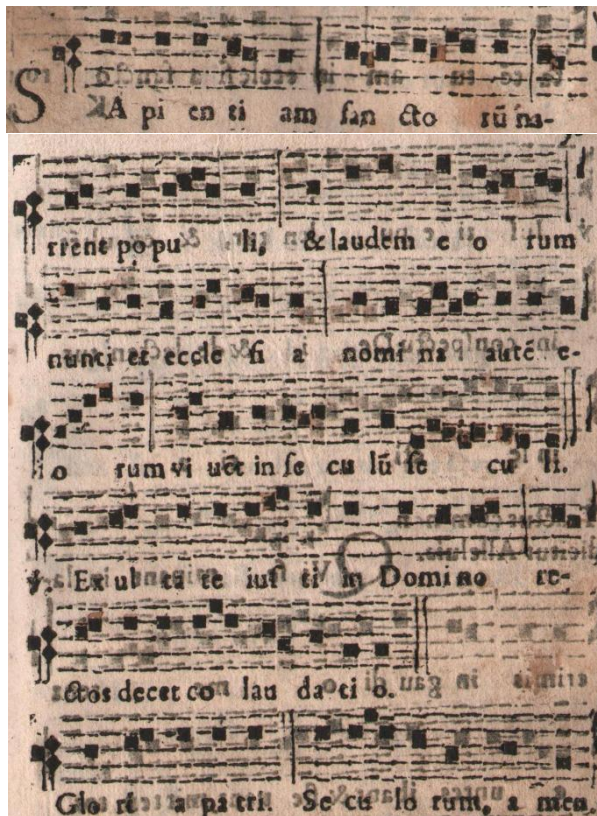 SApientiam sanctorū na-
rrent populi, & laudem eorum
nunciet ecclesia nomina autē e-
iorum vivet in seculū seculi.
℣. Exultate iusti in Domino re-
ctos decet collaudatio.
Gloria patri. Seculorum, amen.